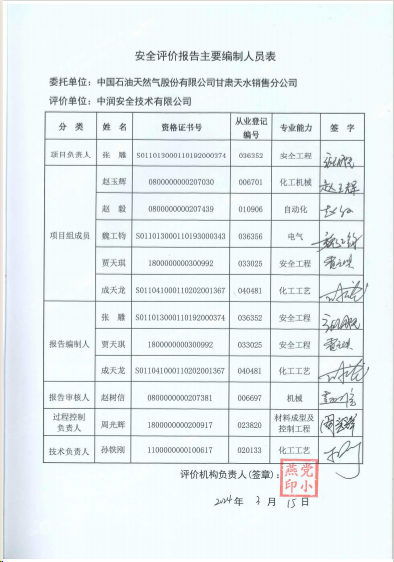 安全评价报告主要编制人员表
委托单位：中国石油天然气股份有限公司甘肃天水销售分公司
评价单位：中润安全技术有限公司
分 类 姓 名 资格证书号 从业登记编号 专业能力 签 字
项目负责人 张 雕 S011013000110192000374 036352 安全工程
项目组成员 赵玉辉 0800000000207030 006701 化工机械 赵玉辉
赵 毅 0800000000207439 010906 自动化 赵毅
魏工钧 S011013000110193000343 036356 电气 魏工钧
贾天琪 1800000000300992 033025 安全工程 贾天琪
成天龙 S011041000110202001367 040481 化工工艺 成天龙
报告编制人 张 雕 S011013000110192000374 036352 安全工程
贾天琪 1800000000300992 033025 安全工程 贾天琪
成天龙 S011041000110202001367 040481 化工工艺 成天龙
报告审核人 赵树信 0800000000207381 006697 机械
过程控制负责人 周光辉 1800000000200917 023820 材料成型及控制工程 周光辉
技术负责人 孙铁刚 1100000000100617 020133 化工工艺
评价机构负责人(签章)：
党小燕印
2024 年 3 月 15 日